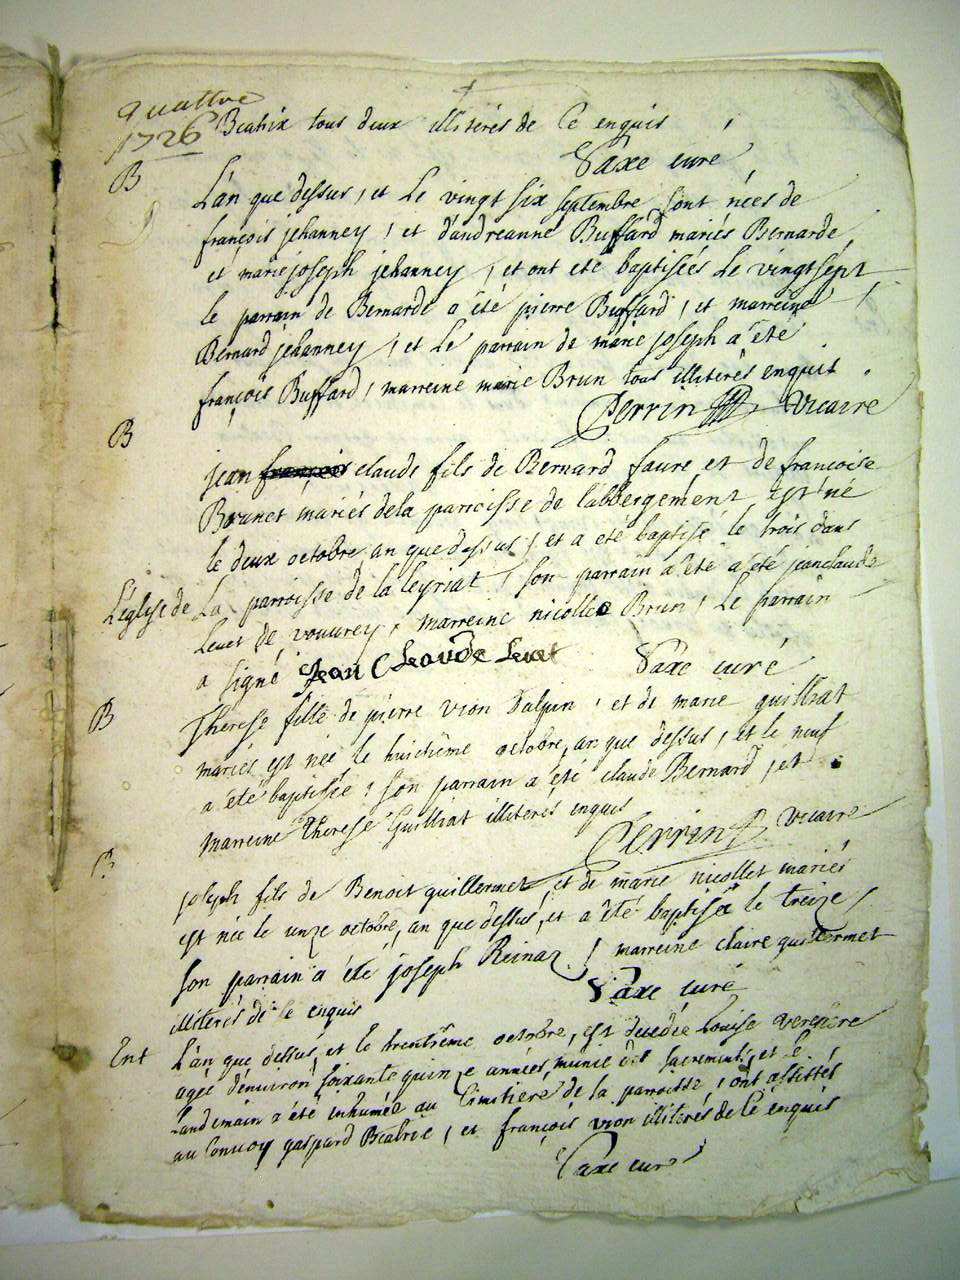 quattre
1726
Beatrix tous deux illiterés de ce enquis
Saxe curé
B
L'an que dessus, et Le vingt six septembre sont nées de
françois jehanney, et d'andreanne Buffard mariés Bernarde
et marie joseph jehanney, et ont eté baptisées Le vingt sept
le parrain de Bernarde a été pierre Buffard, et marreine
Bernard jehanney, et Le parrain de marie joseph a été
françois Buffard, marreine marie Brun tous illiterés enquit.
Perrin vicaire
B
jean françois claude fils de Bernard faure et de francoise
Brunet mariés de la parroisse de l'abbergement est né
le deux octobre an que dessus, et a eté baptisé le trois dans
L'église de La parroisse de la leyriat, son parrain a été a été jean claude
Levet de vouurey, marreine nicolle Brun, Le parrain
a signé Jean Cleaude Levet Saxe curé
B
Therese fille de pierre vion Dalpin, et de marie guilliat
mariés est née le huictième octobre, an que dessus, et le neuf
a été baptisée, son parrain a été claude Bernard, et
marreine Therese Guilliat illiterés enquis
Perrin vicaire
B
joseph fils de Benoit guillermet, et de marie nicollet mariés
est née le unze octobre, an que dessus, et a été baptisé le treize
son parrain a été joseph Reinaz, marreine claire guillermet
illiterés de ce enquis Saxe curé
Ent
L'an que dessus, et le trentième octobre, est decedée Louise
agée d'environ soixante quinze années, munie des sacrements, et le
landemain a été inhumée au Cimitiere de la parroisse, ont assistés
au Convoy gaspard Beatrix, et françois vion illiterés de ce enquis
Saxe curé